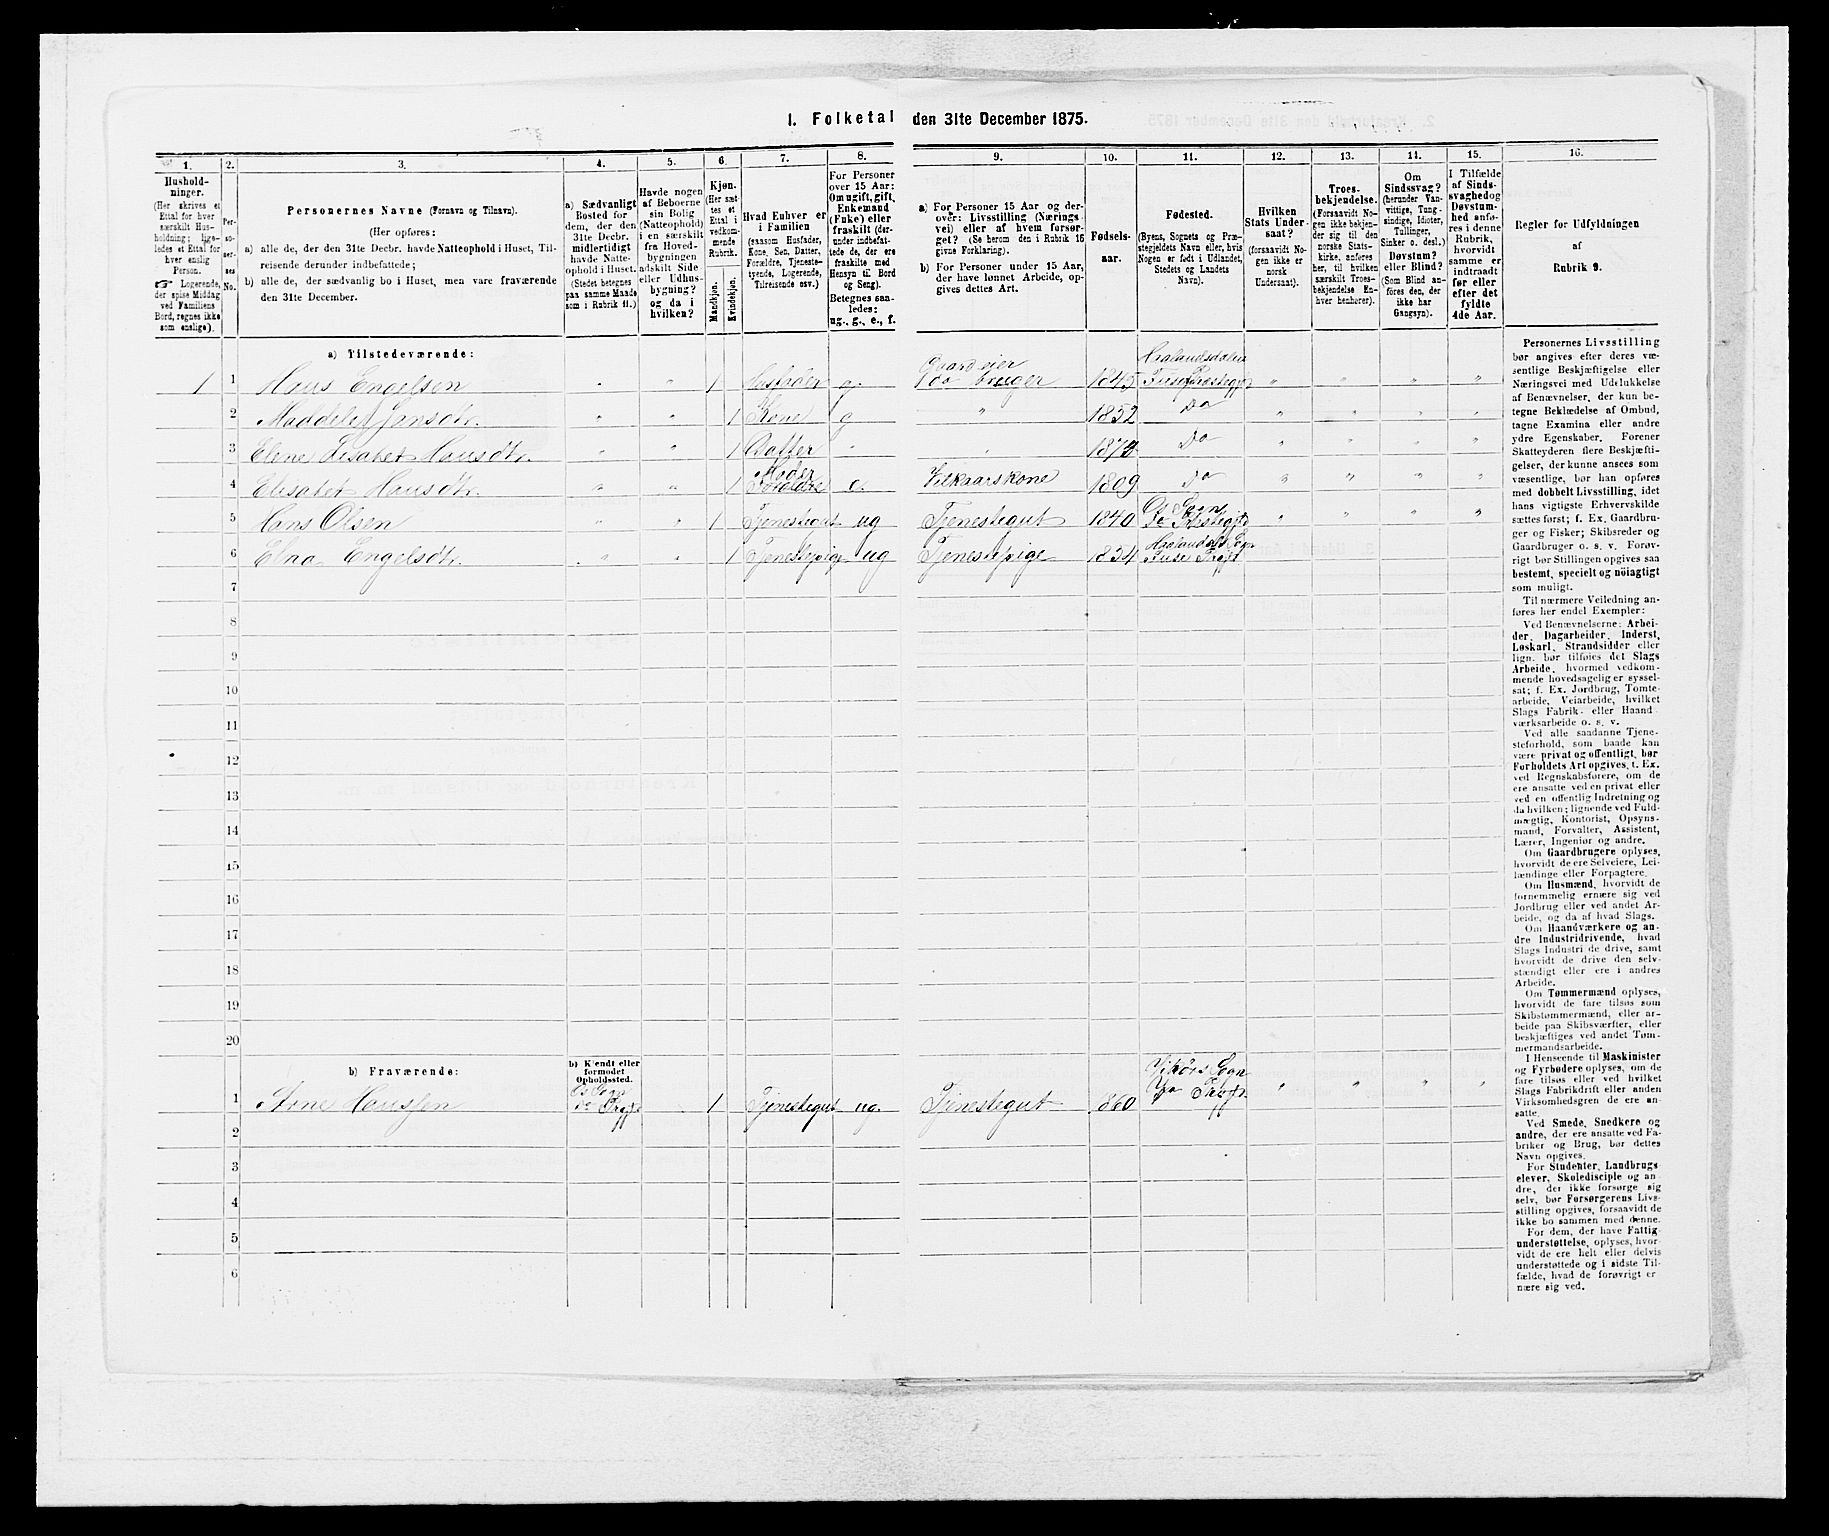 1. Folketal den 31te December 1875.
1.
2.
3.
4.
5.
6.
7.
8.
9.
10.
11.
12.
13.
14.
15.
16.
Hushold-
ninger.
(Her skrives et
Ettal for hver
særskilt Hus-
holdning; lige-
ledes et Ettal for
hver enslig
Person.
☞ Logerende,
der spise Middag
ved Familiens
Bord, regnes ikke
som enslige).
Per-
so-
ner-
nes
No.
Personernes Navne (Fornavn og Tilnavn).
(Her opføres:
a) alle de, der den 31te Decbr. havde Natteophold i Huset, Til-
reisende derunder indbefattede;
b) alle de, der sædvanlig bo i Huset, men vare fraværende
den 31te December.
a) Sædvanligt
Bosted for
dem, der den
31te Decbr.
midlertidigt
havde Natte-
ophold i Huset.
(Stedet betegnes
paa samme Maade
som i Rubrik 11.)
Havde nogen
af Beboerne
sin Bolig
(Natteophold)
i en særskilt
fra Hoved-
bygningen
adskilt Side
eller Udhus-
bygning?
og da i
hvilken?
Kjøn.
(Her sæt-
tes et
Ettal i
vedkom-
mende
Rubrik.
Mandkjøn.
Kvindekjøn.
Hvad Enhver er
i Familien
(saasom Husfader,
Kone, Søn, Datter,
Forældre, Tjeneste-
tyende, Logerende,
Tilreisende osv.)
For Personer
over 15 Aar:
Om ugift, gift,
Enkemand
(Enke) eller
fraskilt (der-
under indbefat-
tede de, der ere
fraskilte med
Hensyn til Bord
og Seng).
Betegnes saa-
ledes:
ug., g., e., f.
a) For Personer 15 Aar og der-
over: Livsstilling (Nærings-
vei) eller af hvem forsør-
get? (Se herom den i Rubrik 16
givne Forklaring).
b) For Personer under 15 Aar,
der have lønnet Arbeide, op-
gives dettes Art.
Fødsels-
aar.
Fødested.
(Byens, Sognets og Præ-
stegjeldets Navn eller, hvis
Nogen er født i Udlandet,
Stedets og Landets
Navn).
Hvilken
Stats Under-
saat?
(forsaavidt No-
gen ikke er
norsk
Undersaat).
Troes-
bekjendelse.
(Forsaavidt No-
gen ikke bekjen-
der sig til den
norske Stats-
kirke, anføres
her, til hvilken
særskilt Troes-
bekjendelse En-
hver henhører).
Om
Sindssvag?
(herunder Van-
vittige, Tung-
sindige, Idioter,
Tullinger,
Sinker o. desl.)
Døvstum?
eller Blind?
(Som Blind an-
føres den, der
ikke har
Gangsyn).
I Tilfælde
af Sinds-
svaghed og
Døvstum-
hed anfø-
res i denne
Rubrik,
hvorvidt
samme er
indtraadt
før eller
efter det
fyldte
4de Aar.
Regler for Udfyldningen
af
Rubrik 9.
a) Tilstedeværende:
1 1 Hans Engelsen " " 1 Husfader g. Gaardeier 1845 Haalandsdalen " " " "
do bruger Fuse Præstegjd
2 Maddele Jansdtr. " " 1 Kone g " 1852 Do " " " "
3 Elene Lisabet Hansdtr. " " 1 Datter " " 1874 Do " " " "
4 Elisabet Hansdtr. " " 1 Moder Forældre e. Vilkaarskone 1809 Do " " " "
5 Hans Olsen " " 1 Tjenestegut ug Tjenestegut 1840 Os Sogn " " " "
do Præstegjd
6 Elna Engelsdtr. " " 1 Tjenestepige ug Tjenestepige 1834 Haalandsds Sogn
Fuse Prgjd
7
8
9
10
11
12
13
14
15
16
17
18
19
20
b) Fraværende:
b) Kjendt eller
formodet
Opholdssted.
1 Arne Hanssen Os Sogn 1 Tjenestegut ug. Tjenestegut 1860 Vikörs Sogn " " " "
do Prgjd do Prgjd.
2
3
4
5
6
Personernes Livsstilling
bør angives efter deres væ-
sentlige Beskjæftigelse eller
Næringsvei med Udelukkelse
af Benævnelser, der kun be-
tegne Beklædelse af Ombud,
tagne Examina eller andre
ydre Egenskaber. Forener
Skatteyderen flere Beskjæfti-
gelser, der kunne ansees som
væsentlige, bør han opføres
med dobbelt Livsstilling, idet
hans vigtigste Erhvervskilde
sættes først; f. Ex. Gaardbru-
ger og Fisker; Skibsreder og
Gaardbruger o. s. v. Forøv-
rigt bør Stillingen opgives saa
bestemt, specielt og nöiagtigt
som muligt.
Til nærmere Veiledning an-
føres her endel Exempler:
Ved Benævnelserne: Arbei-
der, Dagarbeider, Inderst,
Løskarl, Strandsidder eller
lign. bør tilføies det Slags
Arbeide, hvormed vedkom-
mende hovedsagelig er syssel-
sat; f. Ex. Jordbrug, Tomte-
arbeide, Veiarbeide, hvilket
Slags Fabrik- eller Haand
værksarbeide o. s. v.
Ved alle saadanne Tjene-
steforhold, som baade kan
være privat og offentligt, bør
Forholdets Art opgives, f. Ex.
ved Regnskabsførere, om de
ere ansatte ved en privat eller
ved en offentlig Indretning og
da hvilken; lignende ved Fuld-
mægtig, Kontorist, Opsyns-
mand, Forvalter, Assistent,
Lærer, Ingeniør og andre.
Om Gaardbrugere oplyses,
hvorvidt de ere Selveiere, Lei-
lændinge eller Forpagtere.
Om Husmænd, hvorvidt de
fornemmelig ernære sig ved
Jordbrug eller ved andet Ar-
beide, og da af hvad Slags.
Om Haandværkere og an-
dre Industridrivende, hvad
Slags Industri de drive, samt
hvorvidt de drive den selv-
stændigt eller ere i andres
Arbeide.
Om Tømmermænd oplyses,
hvorvidt de fare tilsøs som
Skibstømmermænd, eller ar-
beide paa Skibsværfter, eller
beskjæftiges ved andet Tøm-
mermandsarbeide.
I Henseende til Maskinister
og Fyrbødere oplyses, om de
fare tilsøs eller ved hvilket
Slags Fabrikdrift eller anden
Virksomhedsgren de ere an-
satte.
Ved Smede, Snedkere og
andre, der ere ansatte ved Fa-
briker og Brug, bør dettes
Navn opgives.
For Studenter, Landbrugs
elever, Skoledisciple og an-
dre, der ikke forsørge sig
selv, bør Forsørgerens Livs-
stilling opgives, forsaavidt de
ikke bo sammen med denne.
For dem, der have Fattig-
understøttelse, oplyses, hvor-
vidt de ere helt eller delvis
understøttede og i sidste Til-
fælde, hvad de forøvrigt er
nære sig ved.